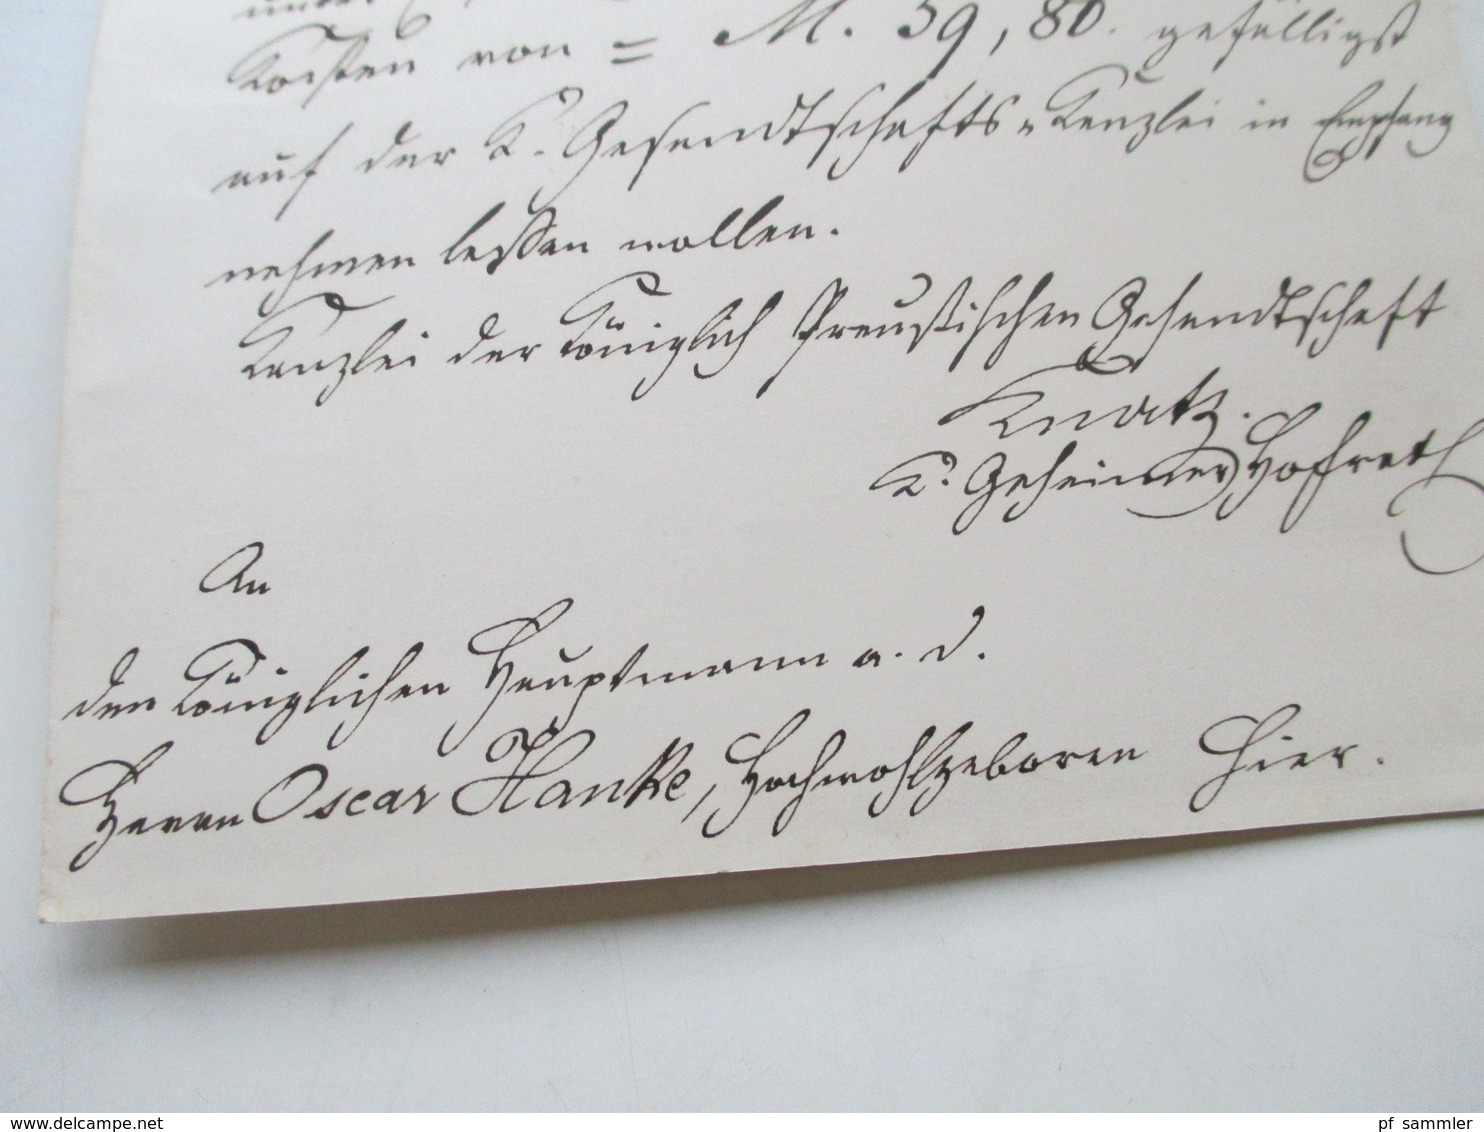 Kosten von = M. 39,80. gefälligst
auf der K. Gesandtschafts-Kanzlei in Empfang
nehmen lassen wollen.
Kanzlei der Königlich Preußischen Gesandtschaft
Knatz.
K. Geheimer Hofrath
An
den Königlichen Hauptmann a. D.
Herrn Oscar Hanke, Hochwohlgeboren Hier.
pf sammler
www.delcampe.net